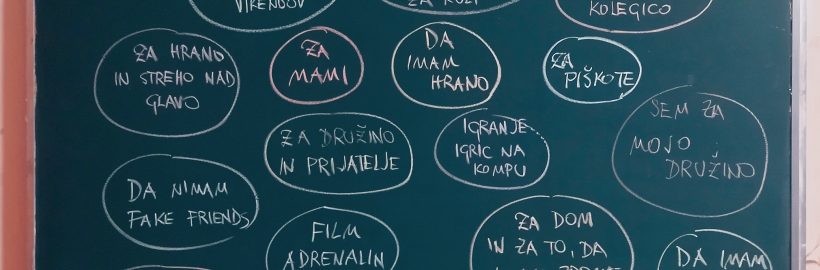 VIKENDOV
ZA
KOLEGICO
ZA HRANO
IN STREHO NAD
GLAVO
ZA
MAMI
DA
IMAM
HRANO
ZA
PIŠKOTE
SEM ZA
MOJO
DRUŽINO
ZA DRUŽINO
IN PRIJATELJE
IGRANJE
IGRIC NA
KOMPU
DA NIMAM
FAKE FRIENDS
FILM
ADRENALIN
ZA DOM
IN ZA TO, DA
DA IMAM